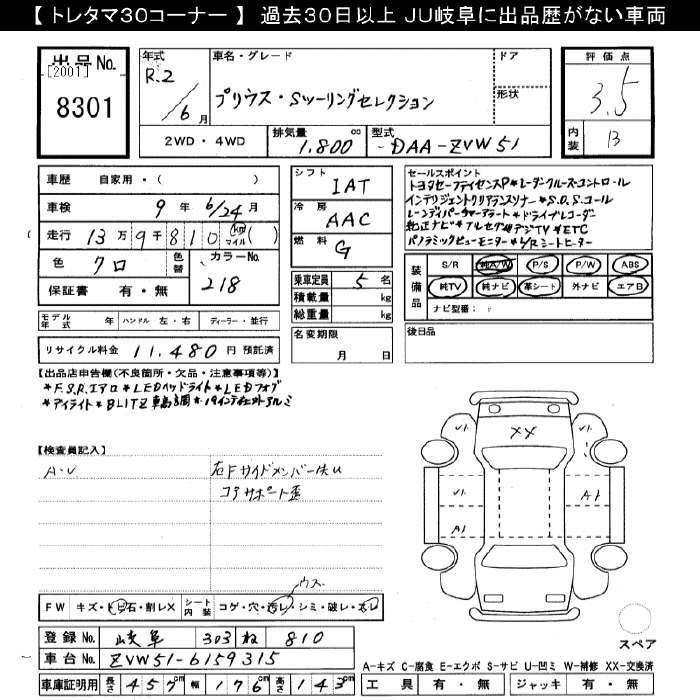 【 トレタマ30コーナー 】 過去30日以上 JU岐阜に出品歴がない車両
出品No.
[2001]
8301
年式
R.2
6月
車名・グレード
プリウス・Sツーリングセレクション
ドア
形状
評価点
3.5
内装
B
2WD・4WD
排気量
1,800 cc
型式
DAA-ZVW51
車歴 自家用・( )
車検 9年 6/24月
走行 13万9千810 km マイル ( )
色 クロ 色替 カラーNo. 218
保証書 有・無
シフト IAT
冷房 AAC
燃料 G
乗車定員 5名
積載量 kg
総重量 kg
セールスポイント
トヨタセーフティセンスP*レーダークルーズコントロール
インテリジェントクリアランスソナー*S.O.Sコール
レーンディパーチャーアラート*ドライブレコーダー
純正ナビ*フルセグ地デジTV*ETC
パノラミックビューモニター*S/Rシートヒーター
装備品
S/R 純A/W P/S P/W ABS
純TV 純ナビ 革シート 外ナビ エアB
ナビ型番:
モデル年式 年 ハンドル 左・右 ディーラー・並行
名変期限
月 日
後日品
リサイクル料金 11,480円 預託済
【出品店申告欄(不良箇所・欠品・注意事項等)】
*F.S.Rエアロ*LEDヘッドライト*LEDフォグ
*アイライト*BLITZ車高調*19インチ社外アルミ
【検査員記入】
A・U
右Fサイドメンバー先U
コアサポート歪
ウス
FW キズ・トビ石・割レX シート内装 コゲ・穴・汚レ・シミ・破レ・スレ
登録No. 岐阜 303 ね 810
車台No. ZVW51-6159315
車庫証明用 長さ 457cm 幅 176cm 高さ 143cm
XX
A1
A1
スペア
A-キズ C-腐食 E-エクボ S-サビ U-凹ミ W-補修 XX-交換済
工具 有・無 ジャッキ 有・無